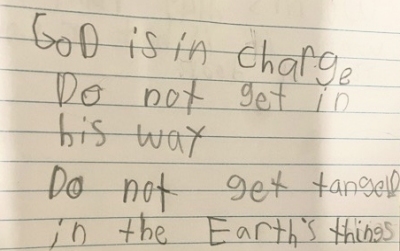 GoD is in charge
Do not get in
his way
Do not get tangelD
in the Earth's things